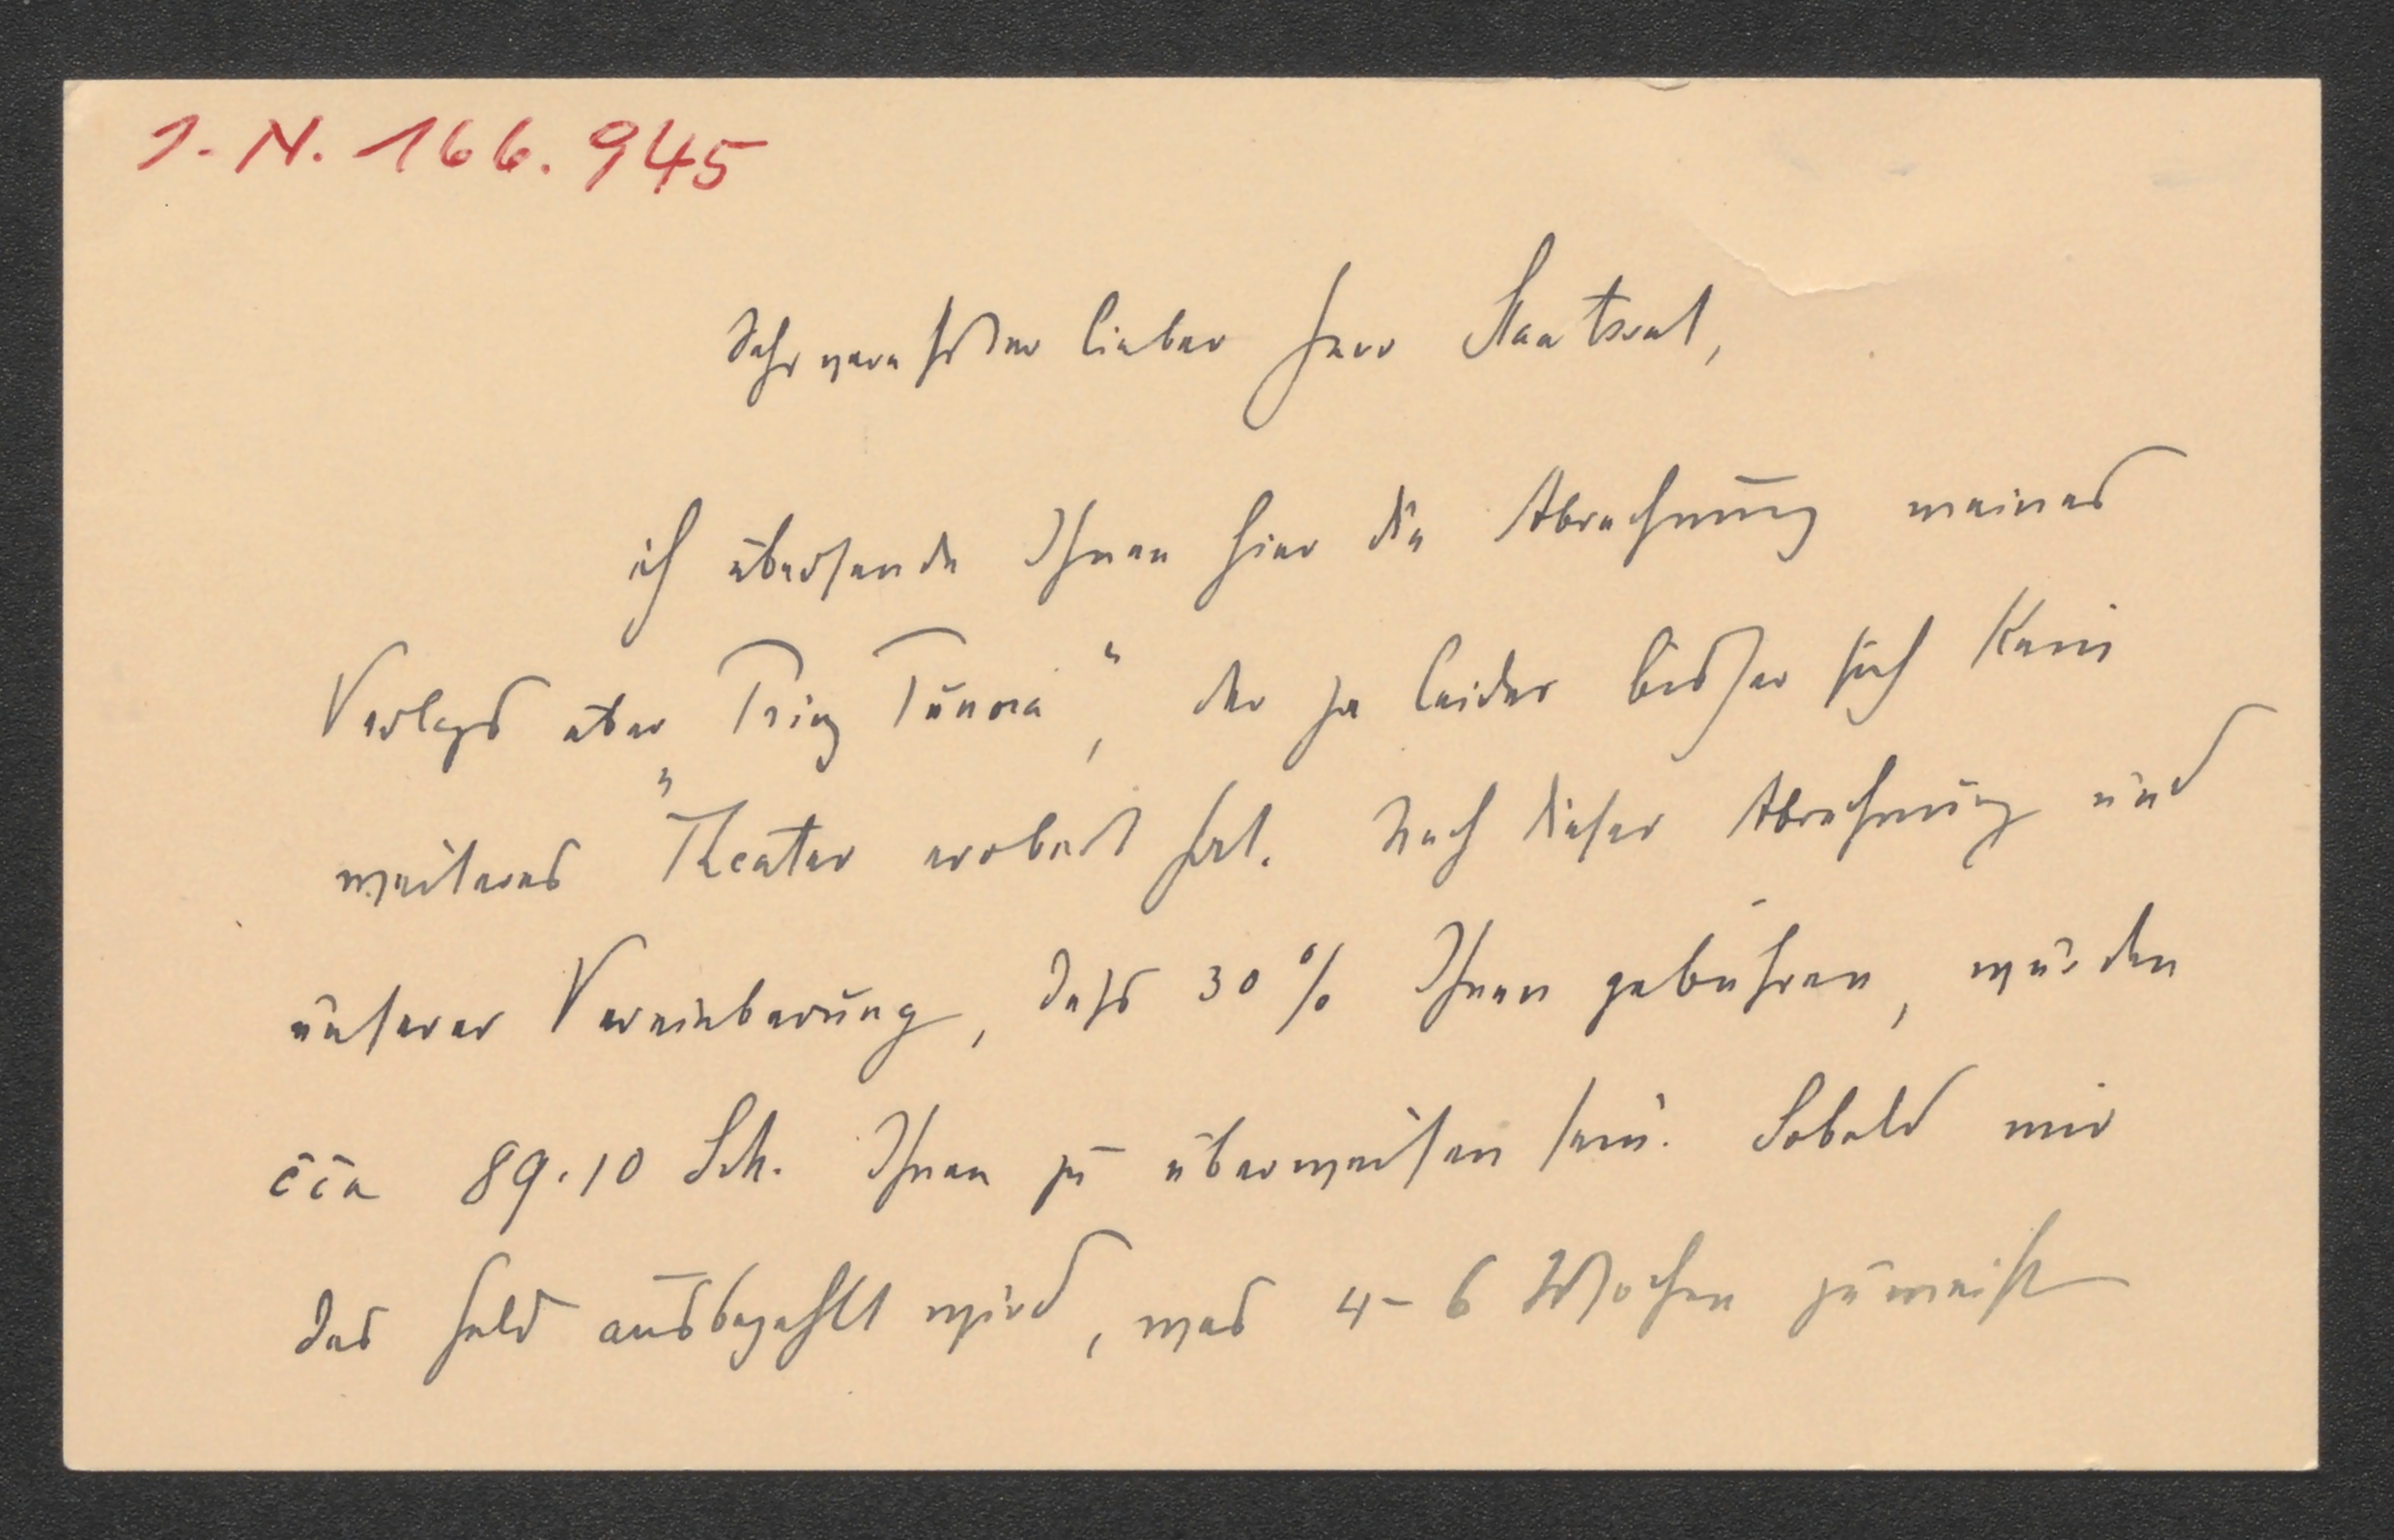 I. N. 166.945
Sehr verehrter lieber Herr Staatsrat,
ich übersende Ihnen hier die Abrechnung meines
Verlags über „Prinz Tunora“, der ja leider bisher sich kein
weiteres Theater erobert hat. Nach dieser Abrechnung und
unserer Vereinbarung, dass 30% Ihnen gebühren, würden
cca 89.10 Sch. Ihnen zu überweisen sein. Sobald mir
das Geld ausbezahlt wird, was 4-6 Wochen zumeist